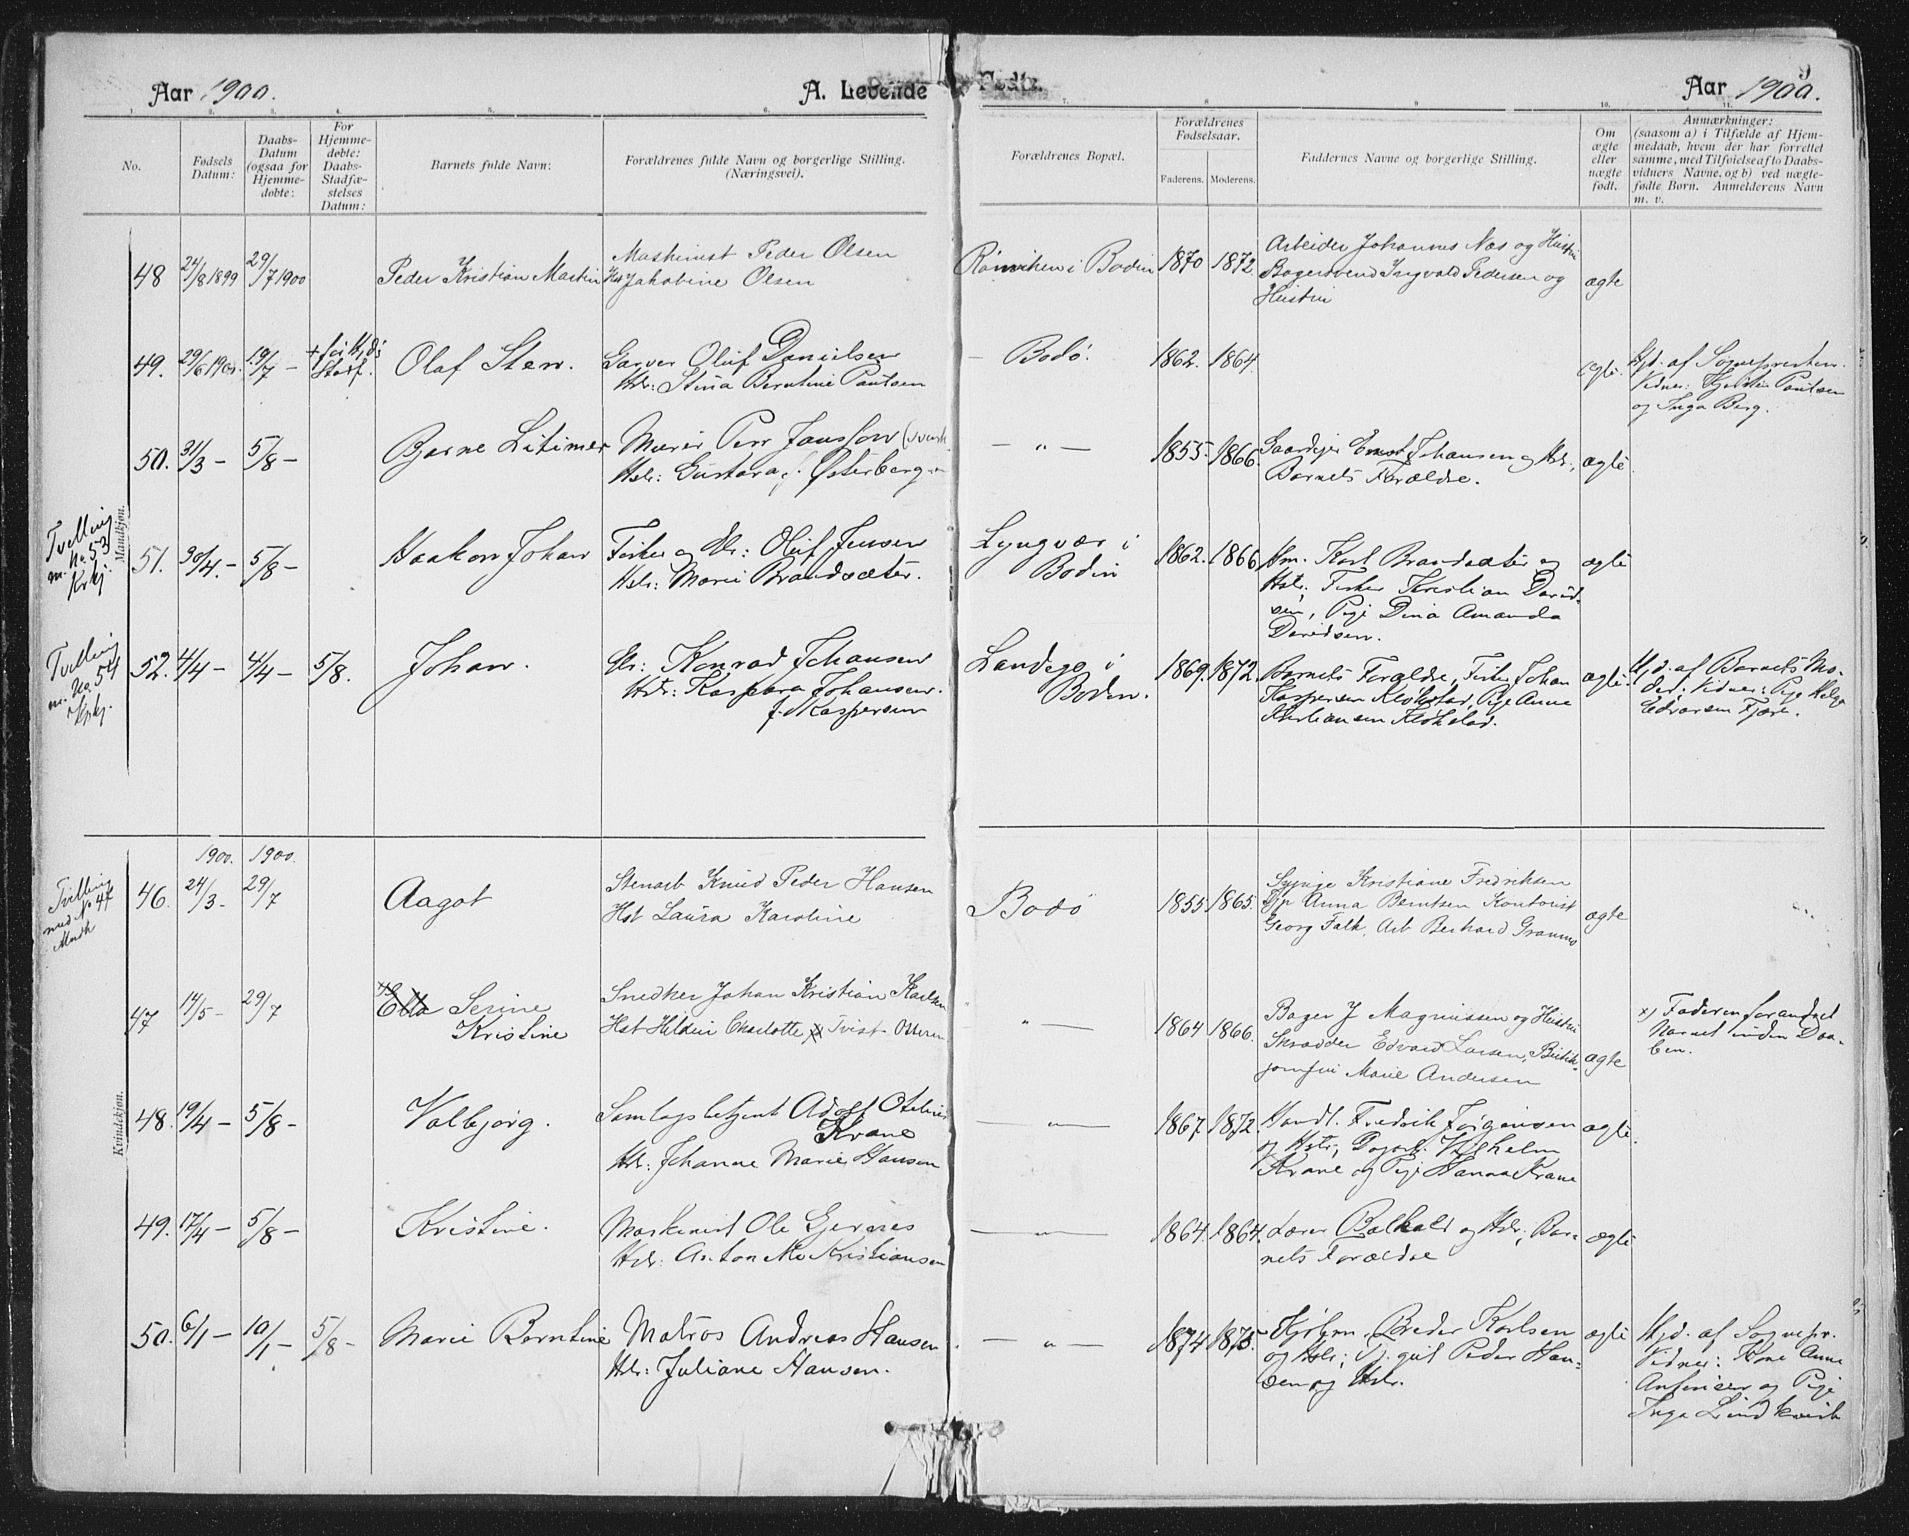 Aar 1900.
A. Levende Fødte.
Aar 1900.
9
1. 2. 3. 4. 5. 6. 7. 8 9 10. 11.
No.
Fødsels Datum:
Daabs-Datum (ogsaa for Hjemmedøbte:
For Hjemmedøbte: Daabs-Stadfæstelses Datum:
Barnets fulde Navn:
Forældrenes fulde Navn og borgerlige Stilling. (Næringsvei).
Forældrenes Bopæl.
Forældrenes Fødselsaar.
Faderens. Moderens.
Faddernes Navne og borgerlige Stilling.
Om ægte eller uægte født.
Anmærkninger: (saasom a) i Tilfælde af Hjemmedaab, hvem der har forrettet samme, med Tilføielse af to Daabsvidners Navne, og b) ved uægtefødte Børn. Anmelderens Navn m. v.
Mandkjøn.
48 24/8 1899 29/7 1900 Peder Kristian Martin
Maskinist Peder Olsen
Hst Jakobine Olsen
Rønviken i Bodin 1870 1872
Arbeider Johannes Næs og Hustru
Bagersvend Ingvald Pedersen og
Hustru
ægte
49. 29/6 1900 19/7 - Stadf. Olaf Sten.
Garver Oluf Danielsen
Hstr: Stina Berntine Paulsen
- Bodø. 1862. 1864.
ægte.
Hjd. af Sognepresten.
Vidner: Paulsen
og Inga Berg.
50. 31/3 - 5/8 - Bjarne Litimer
Murer Per Jansson
Hstr: Gustava f. Østerberg
- " - 1855. 1866.
Gaardeier Ernst Johansen og Hstr.,
Barnets Forældre.
ægte
Tvilling
m. No. 53
Krkj.
51. 30/4. - 5/8 - Haakon Johan
Fisker og Gbr: Oluf Jensen
Hstr: Marie Brandsæter.
Lyngvær i
Bodin
1862. 1866
Gbm. Karl Brandsæter og
Hstr; Fisker Kristian David-
sen, Pige Dina Amanda
Davidsen.
ægte
Tvilling
m. No. 54
52. 4/4 - 4/4 - 5/8. Johan.
Gbr: Konrad Johansen
Hstr: Kaspara Johansen
f. Kaspersen
Landego i
Bodin.
1869. 1872.
Barnets Forældre, Fisker Johan
Kaspersen Kløkstad, Pige Anna
Kristiansen Kløkstad.
ægte.
Hjd. af Barnets Mo-
der; Vidner: Pige Helga
Edvardsen Fjære.
Kvindekjøn.
1900. 1900.
Tvilling
med No 47
46. 24/3 - 29/7 Aagot
Stenarb Knud Peder Hansen
Hst Laura Karoline
Bodø 1855 1865.
Sypige Kristiane Fredriksen
Tjp Anna Berntsen Kontorist
Georg Falk, Arb Berhard Grammo
ægte
47 14/5 - 29/7 x) Ella Serine
Kristine
Snedker Johan Kristian Karlsen
Hst Charlotte Tvist
" - 1864 1866.
Bager J Magnussen og Hustru
Skrædder Edvard Larsen, Butik-
jomfru Marie Andersen
ægte
x) Faderen forandret
Navnet inden Daa-
ben.
48. 19/4 - 5/8 - Valbjørg.
Samlagsbetjent Adolf
Krane
Hstr: Johanne Marie Hansen
- " - 1867. 1872.
Handl. Fredrik Jørgensen
og Hstr, Vilhelm
Krane og Pige Hanna Krane
ægte.
49. 17/4 - 5/8 - Kristine.
Maskinist Ole
Hstr: Kristiansen
- " - 1864. 1864.
Lærer og Hstr, Bar-
nets Forældre
ægte
50. 6/1 - 10/1 - 5/8 - Marie Berntine
Matros Andreas Hansen
Hstr: Juliane Hansen.
- " - 1874 1875.
Peder Karlsen
og Hstr; gut Peder Han-
sen og Hstr.
ægte
Hjd. af Sognepr.
Vidner: Kone Anne
og Pige
Inga Lindkvist